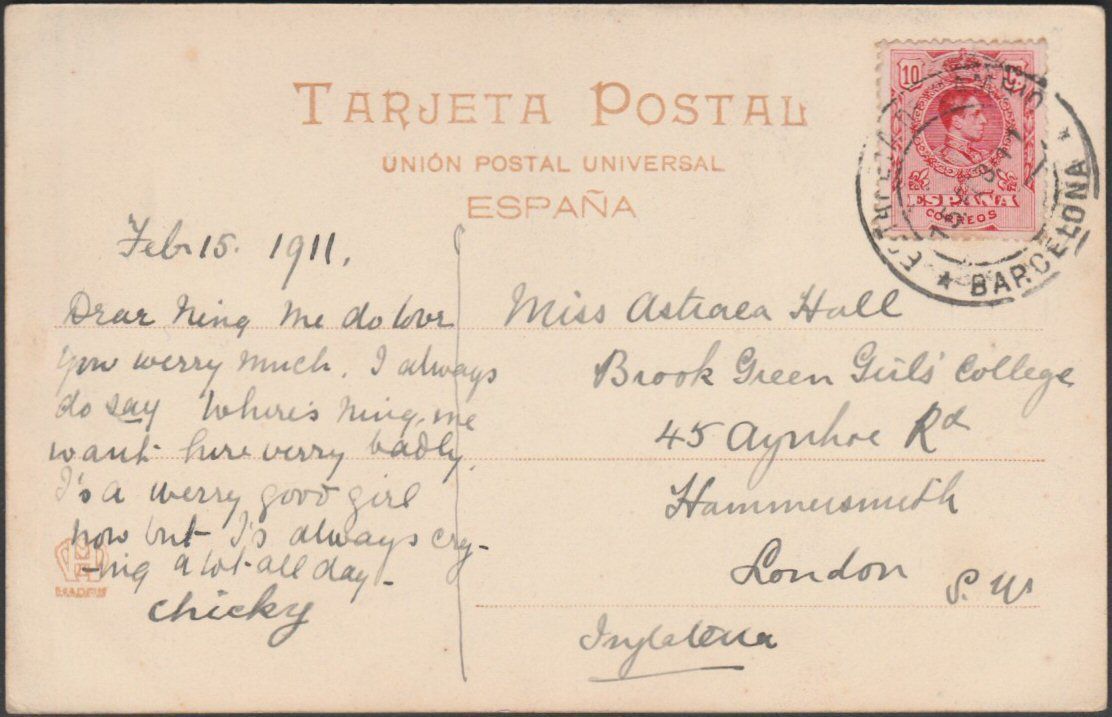 TARJETA POSTAL
UNIÓN POSTAL UNIVERSAL
ESPAÑA
10
ESPAÑA
CORREOS
★ BARCELONA ★
Feb 15. 1911.
Dear Ning Me do love
you werry much. I always
do say Where's Ning, me
want here verry badly.
I's a werry good girl
now but I's always cry-
-ing a lot all day-
Chicky
Miss Astraea Hall
Brook Green Girls' College
45 Aynhoe Rd
Hammersmith
London S. W
Inglaterra
MADRID